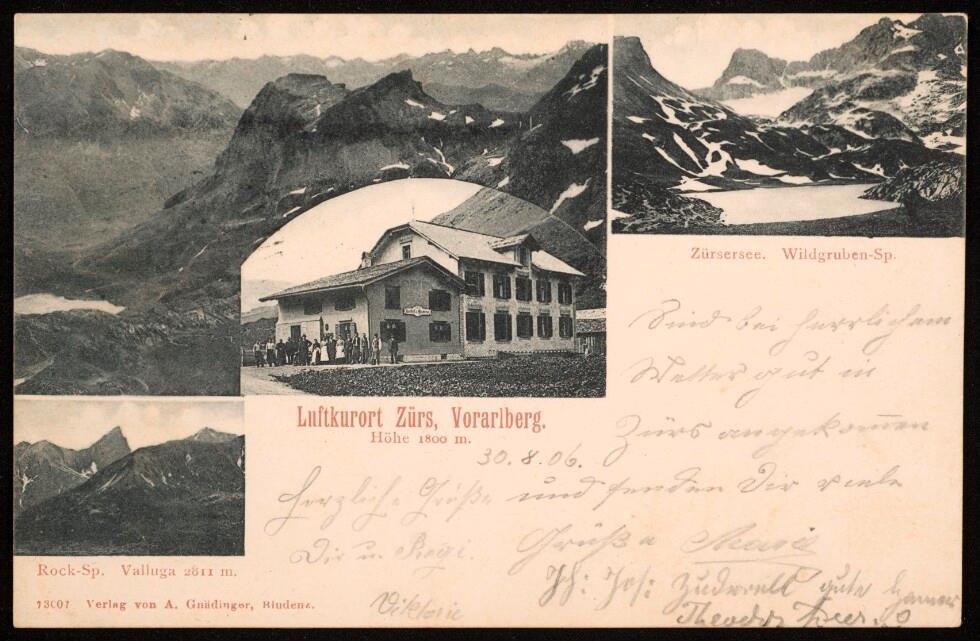 Zürsersee. Wildgruben-Sp.
Sind bei herrlichem
Wetter gut in
Zürs angekom̅en
und senden Dir viele
Grüße
Luftkurort Zürs, Vorarlberg.
Höhe 1800 m.
30.8.06.
Herzliche Grüße
Dir u.
Viktorie
Jos: gute
Theodor
Rock-Sp. Valluga 2811 m.
Verlag von A. Gnädinger, Bludenz.